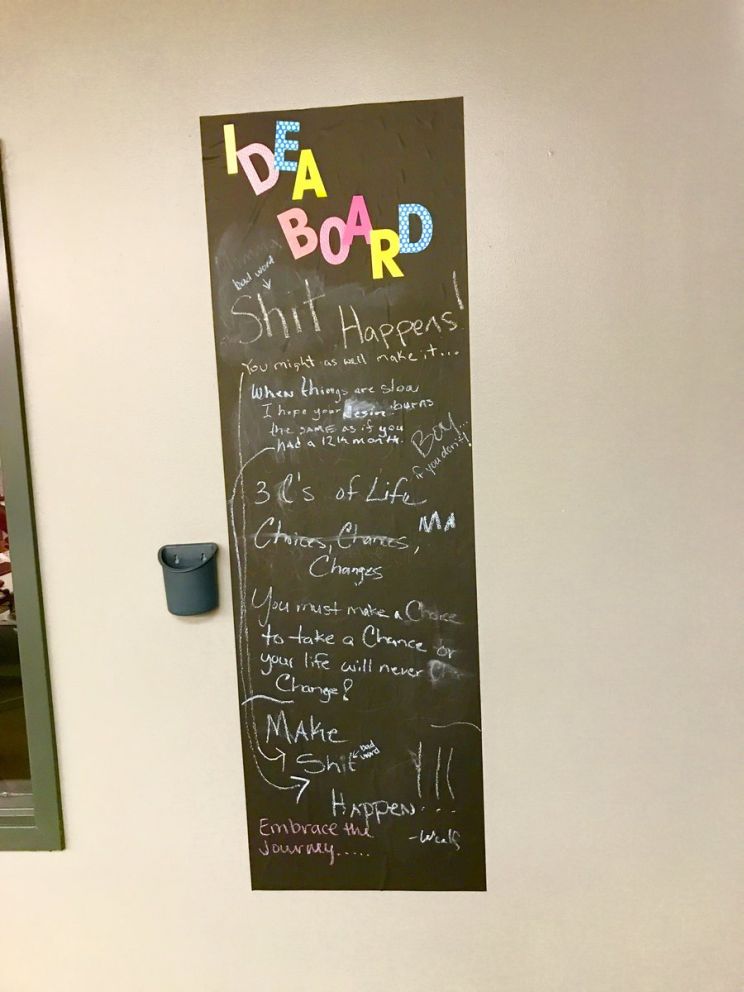 IDEA
BOARD
bad word
Shit Happens!
You might as well make it...
When things are slow
I hope your desire burns
the SAME AS if you
had a 12th month.
Boy...
if you don't!
3 C's of Life
MA
Choices, Chances,
Changes
You must make a Choice
to take a Chance or
your life will never
Change!
MAKe
Shit bad word
HAppen....
Embrace the
Journey.....